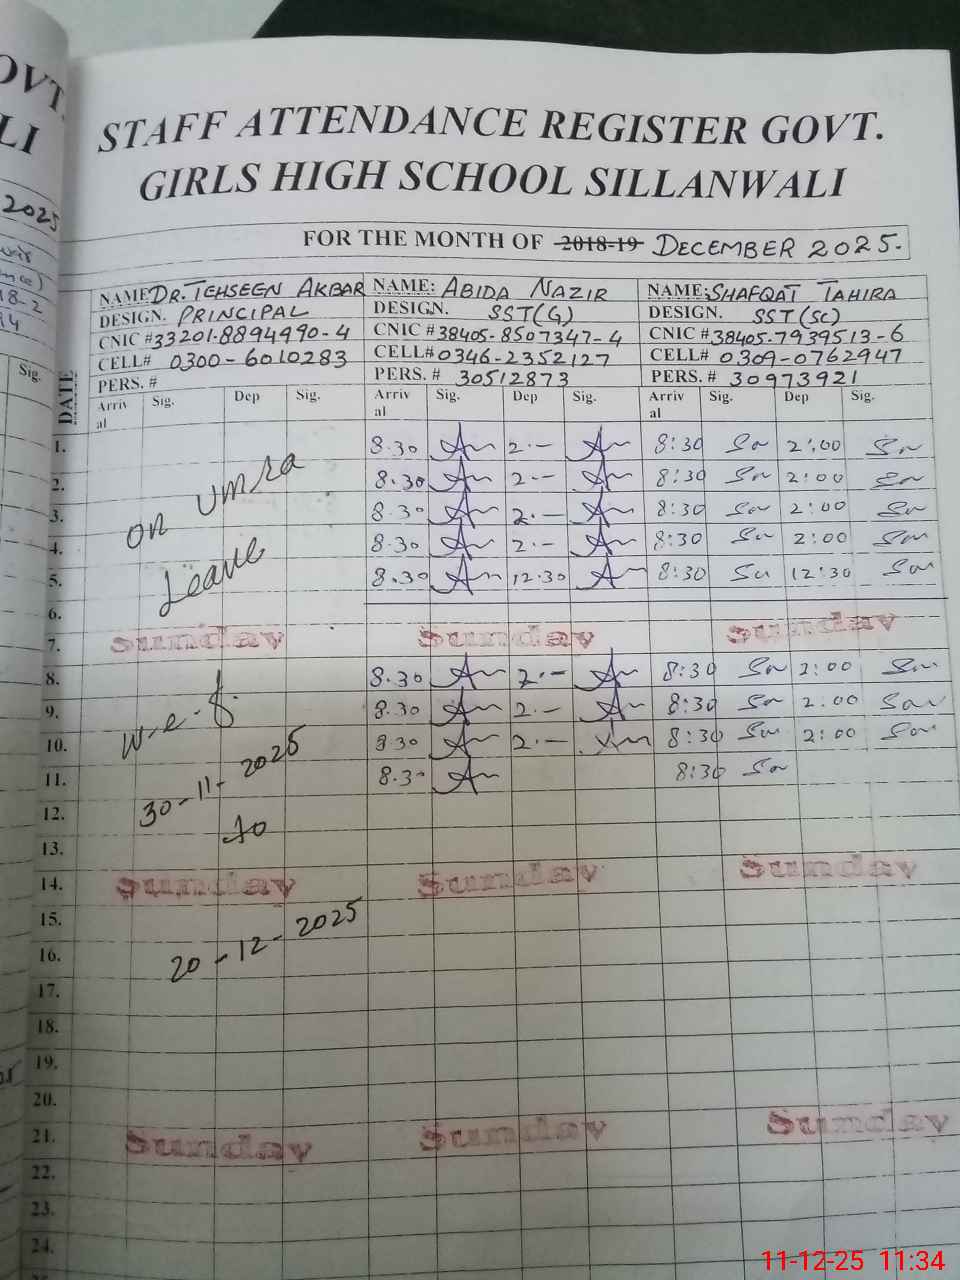 OVT.
LI
2025
18-2
Sig.
STAFF ATTENDANCE REGISTER GOVT.
GIRLS HIGH SCHOOL SILLANWALI
FOR THE MONTH OF 2018-19 DECEMBER 2025.
NAME: DR. TEHSEEN AKBAR NAME: ABIDA NAZIR NAME: SHAFQAT TAHIRA
DESIGN. PRINCIPAL DESIGN. SST(G) DESIGN. SST(SC)
CNIC # 33201-8894990-4 CNIC # 38405-8507347-4 CNIC # 38405-7939513-6
CELL# 0300-6010283 CELL# 0346-2352127 CELL# 0309-0762947
PERS. # PERS. # 30512873 PERS. # 30973921
DATE Arriv al Sig. Dep Sig. Arriv al Sig. Dep Sig. Arriv al Sig. Dep Sig.
1. 8.30 2.- 8:30 2:00
2. on umra 8.30 2.- 8:30 2:00
3. 8.30 2.- 8:30 2:00
4. Leave 8.30 2.- 8:30 2:00
5. 8.30 12.30 8:30 12:30
6.
7. Sunday Sunday Sunday
8. 8.30 2.- 8:30 2:00
9. w.e.f. 8.30 2.- 8:30 2:00
10. 8.30 2.- 8:30 2:00
11. 30-11-2025 8.30 8:30
12. to
13.
14. Sunday Sunday Sunday
15.
16. 20-12-2025
17.
18.
19.
20.
21. Sunday Sunday Sunday
22.
23.
24.
11-12-25 11:34